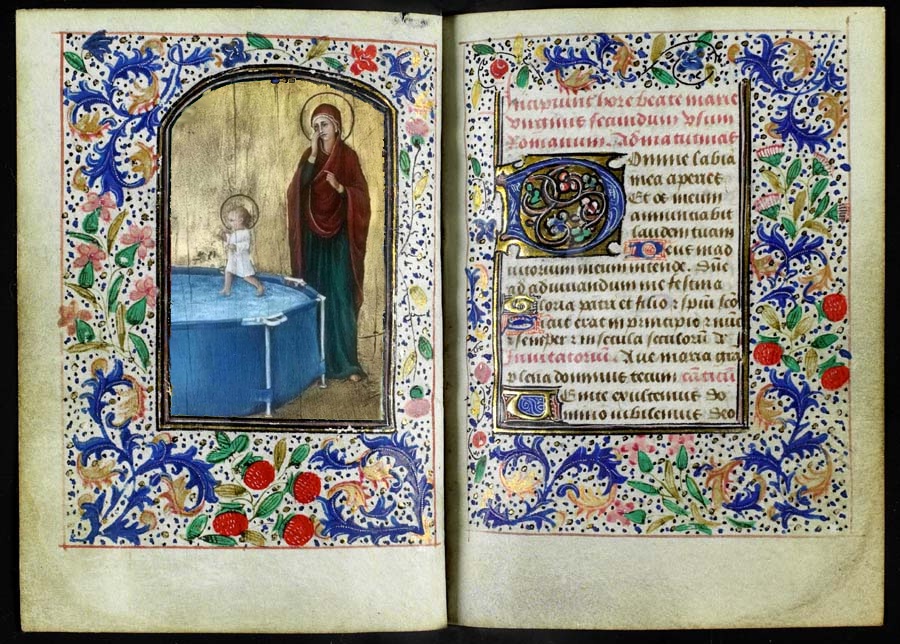 Incipiunt hore beate marie
virginis secundum vsum
Romanum. Ad matutinas
Domine labia
mea aperies
Et os meum
annunciabit
laudem tuam
Deus in ad
iutorium meum intende. Dne
ad adiuuandum me festina
Gloria patri et filio z spiu sco
Sicut erat in principio z nuc
z semper z in secula seculorū
Inuitatoriū. Aue maria gra
plena dominus tecum
Uenite exultemus do
mino iubilemus deo